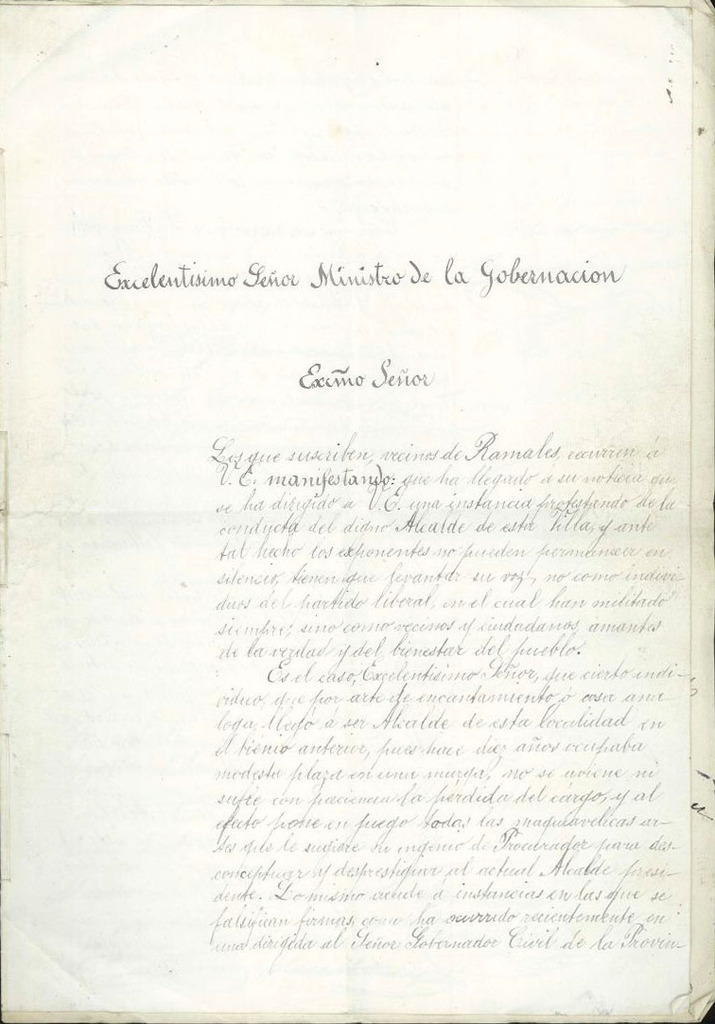 Excelentisimo Señor Ministro de la Gobernacion
Excmo Señor
Los que suscriben, vecinos de Ramales, ocurren á
V. E. manifestando: que ha llegado a su noticia que
se ha dirigido a V. E. una instancia protestando de la
conducta del digno Alcalde de esta Villa, y ante
tal hecho los exponentes no pueden permanecer en
silencio, tienen que levantar su voz, no como indivi-
duos del partido liberal, en el cual han militado
siempre, sino como vecinos y ciudadanos, amantes
de la verdad y del bienestar del pueblo.
Es el caso, Excelentisimo Señor, que cierto indi-
viduo, que por arte de encantamiento, o cosa aná-
loga, llegó a ser Alcalde de esta localidad en
el bienio anterior, pues hace diez años ocupaba
modesta plaza en una murga, no se aviene ni
sufre con paciencia la pérdida del cargo, y al
efecto pone en juego todas las maquiavelicas ar-
tes que le sugiere su ingenio de Procurador para des-
conceptuar y desprestigiar al actual Alcalde presi-
dente. Lo mismo acude a instancias en las que se
falsifican firmas, como ha ocurrido recientemente en
una dirigida al Señor Gobernador Civil de la Provin-